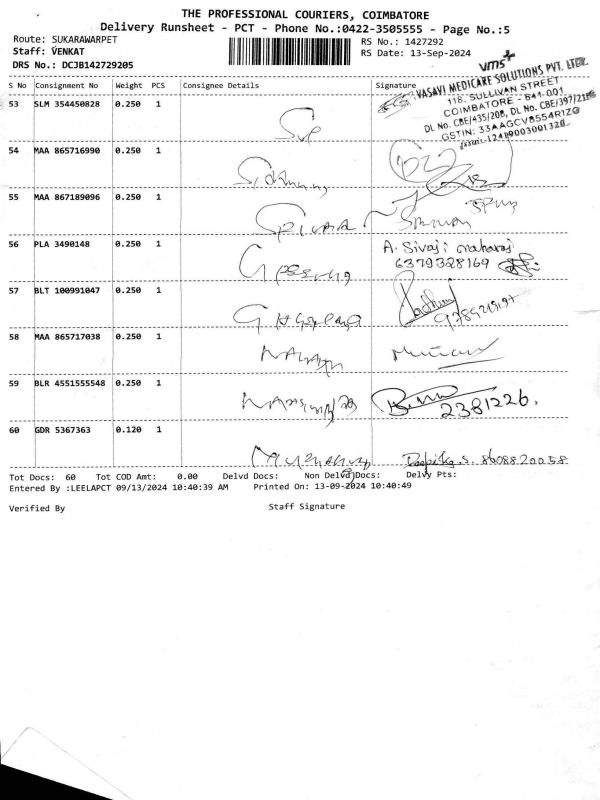 THE PROFESSIONAL COURIERS, COIMBATORE
Delivery Runsheet - PCT - Phone No.:0422-3505555 - Page No.:5
Route: SUKARAWARPET
RS No.: 1427292
Staff: VENKAT
RS Date: 13-Sep-2024
DRS No.: DCJB142729205
vms+
VASAVI MEDICARE SOLUTIONS PVT. LTD.
118, SULLIVAN STREET
COIMBATORE - 641 001
DL No. CBE/435/20B, DL No. CBE/397/21B
GSTIN: 33AAGCV8554R1ZG
S No Consignment No Weight PCS Consignee Details Signature
53 SLM 354450828 0.250 1
54 MAA 865716990 0.250 1
55 MAA 867189096 0.250 1
56 PLA 3490148 0.250 1 A. Sivaji maharaj
6379328169
57 BLT 100991047 0.250 1
58 MAA 865717038 0.250 1
59 BLR 4551555548 0.250 1
2381226.
60 GDR 5367363 0.120 1 Deepika.S. 8608820058
Tot Docs: 60 Tot COD Amt: 0.00 Delvd Docs: Non Delvd Docs: Delvy Pts:
Entered By :LEELAPCT 09/13/2024 10:40:39 AM Printed On: 13-09-2024 10:40:49
Verified By Staff Signature